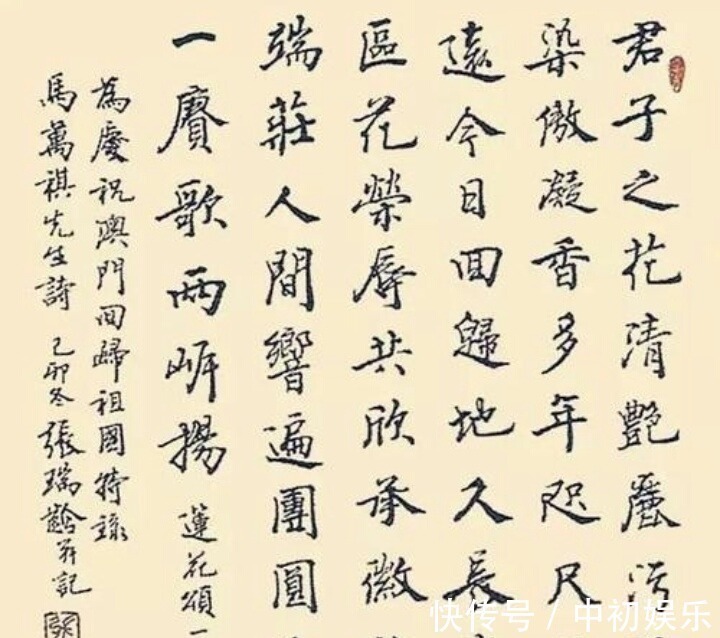 君子之花清艷麗污
染傲凝香多年咫尺
遠今日回歸地久長
區花榮辱共欣承徽
端莊人間響遍團圓
一賡歌兩岸揚 蓮花頌一
為慶祝澳門回歸祖國特錄
馬萬祺先生詩 己卯冬 張瑞齡并記
快传号 / 中初娱乐